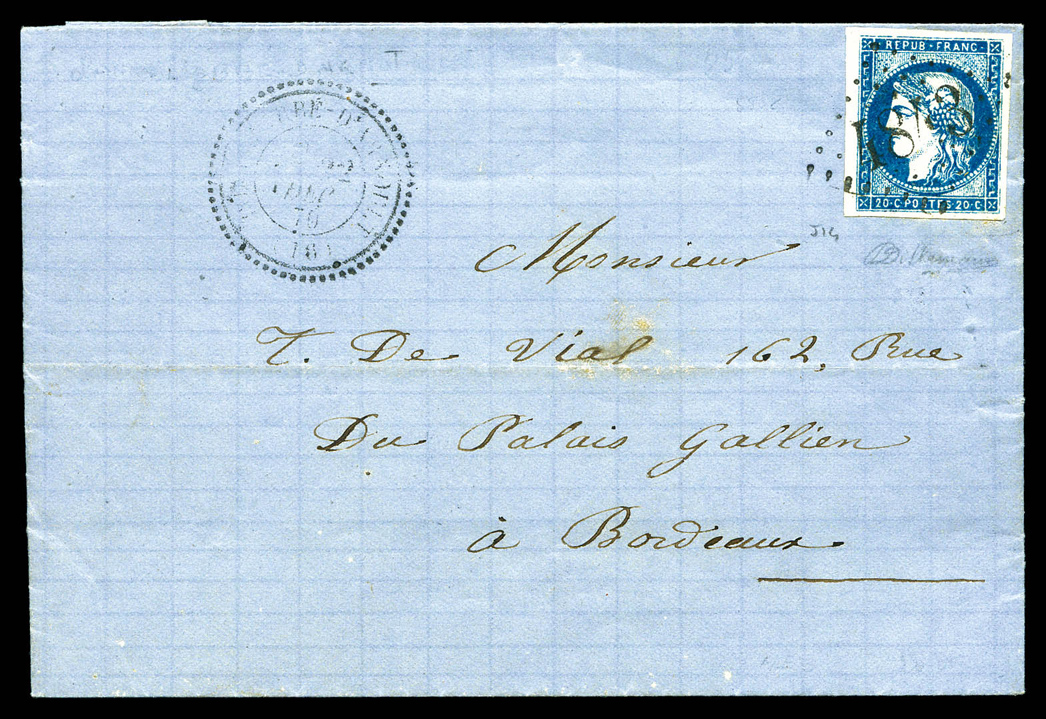 REPUB · FRANC ·
20·C·POSTES·20·C
J14
70
(16)
Monsieur
T. De Vial 162, Rue
Du Palais Gallien
à Bordeaux